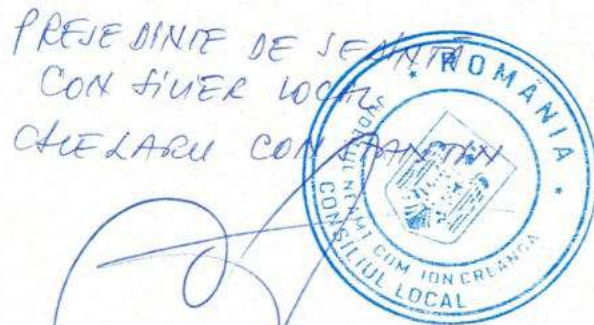 PREȘEDINTE DE SENINȚĂ
CONSILIER LOCAL
CHELARU CONSTANTIN
* ROMÂNIA *
JUDEȚUL NEAMȚ COM. ION CREANGĂ
CONSILIUL LOCAL